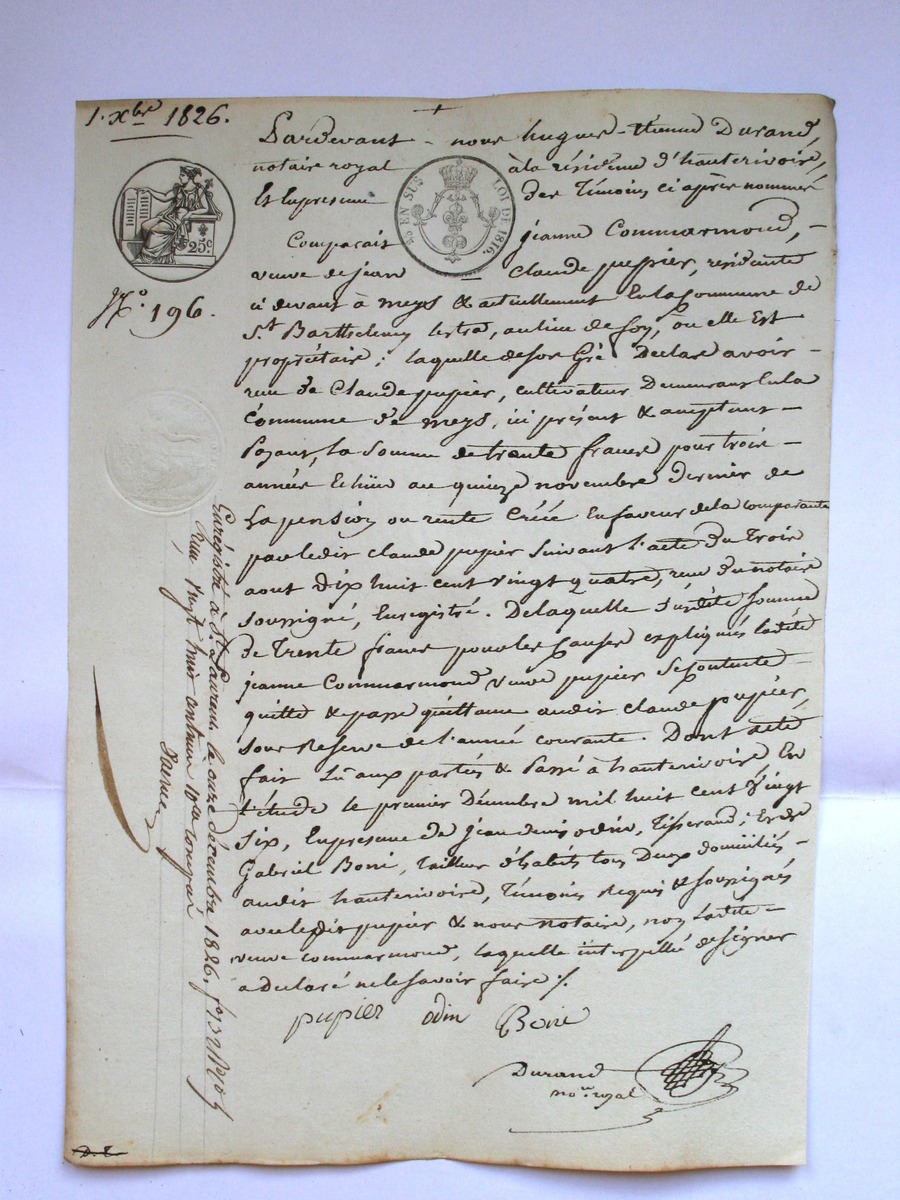 1. Xbre 1826.
Pardevant - nous hugues - Etienne Durand,
notaire royal à la résidence d'hauterivoire,
Et En presence des Témoins ci après nommés
25c.
EN SUS LOI DE 1816.
Comparait jeanne Commarmond, -
veuve de jean — Claude pupier, residante
ci devant à meys & actuellement En la Commune de
N.o 196.
St Barthelemy lestra, au lieu de foy, ou elle Est
propriétaire; laquelle de son Gré Declare avoir -
reçu de Claude pupier, cultivateur Demeurant En la
Commune de meys, ici présent & acceptant -
Payant, la Somme de trente francs pour trois -
années Echües au quinze novembre Dernier de
La pension ou rente Créée En faveur de la comparante
par ledit Claude pupier Suivant l'acte du Trois
aout Dix huit cent vingt quatre, reçu du notaire
soussigné, Enregistré. De laquelle Susdite Somme
de Trente francs pour les Causes expliquées ladite
jeanne Commarmond veuve pupier Se contente -
quitte & passe quittance audit Claude pupier,
sous Reserve de l'année courante. Dont acte
fait Lû aux parties & Passé à hauterivoire En
l'étude le premier Décembre mil huit cent Vingt
Six, En presence de jean denis odin, Tisserand; Et de
Gabriel Boni, Tailleur d'habits tous Deux domiciliés -
audit hauterivoire, Témoins Requis & soussignés
avec ledit pupier & nous notaire, non ladite -
veuve commarmond, laquelle interpellée de signer
a declaré ne le savoir faire ./.
pupier odin Boni
Durand
not. royal
Enregistré à St Laurent le onze décembre 1826. fo 132
Reçu vingt huit centimes
D. E.